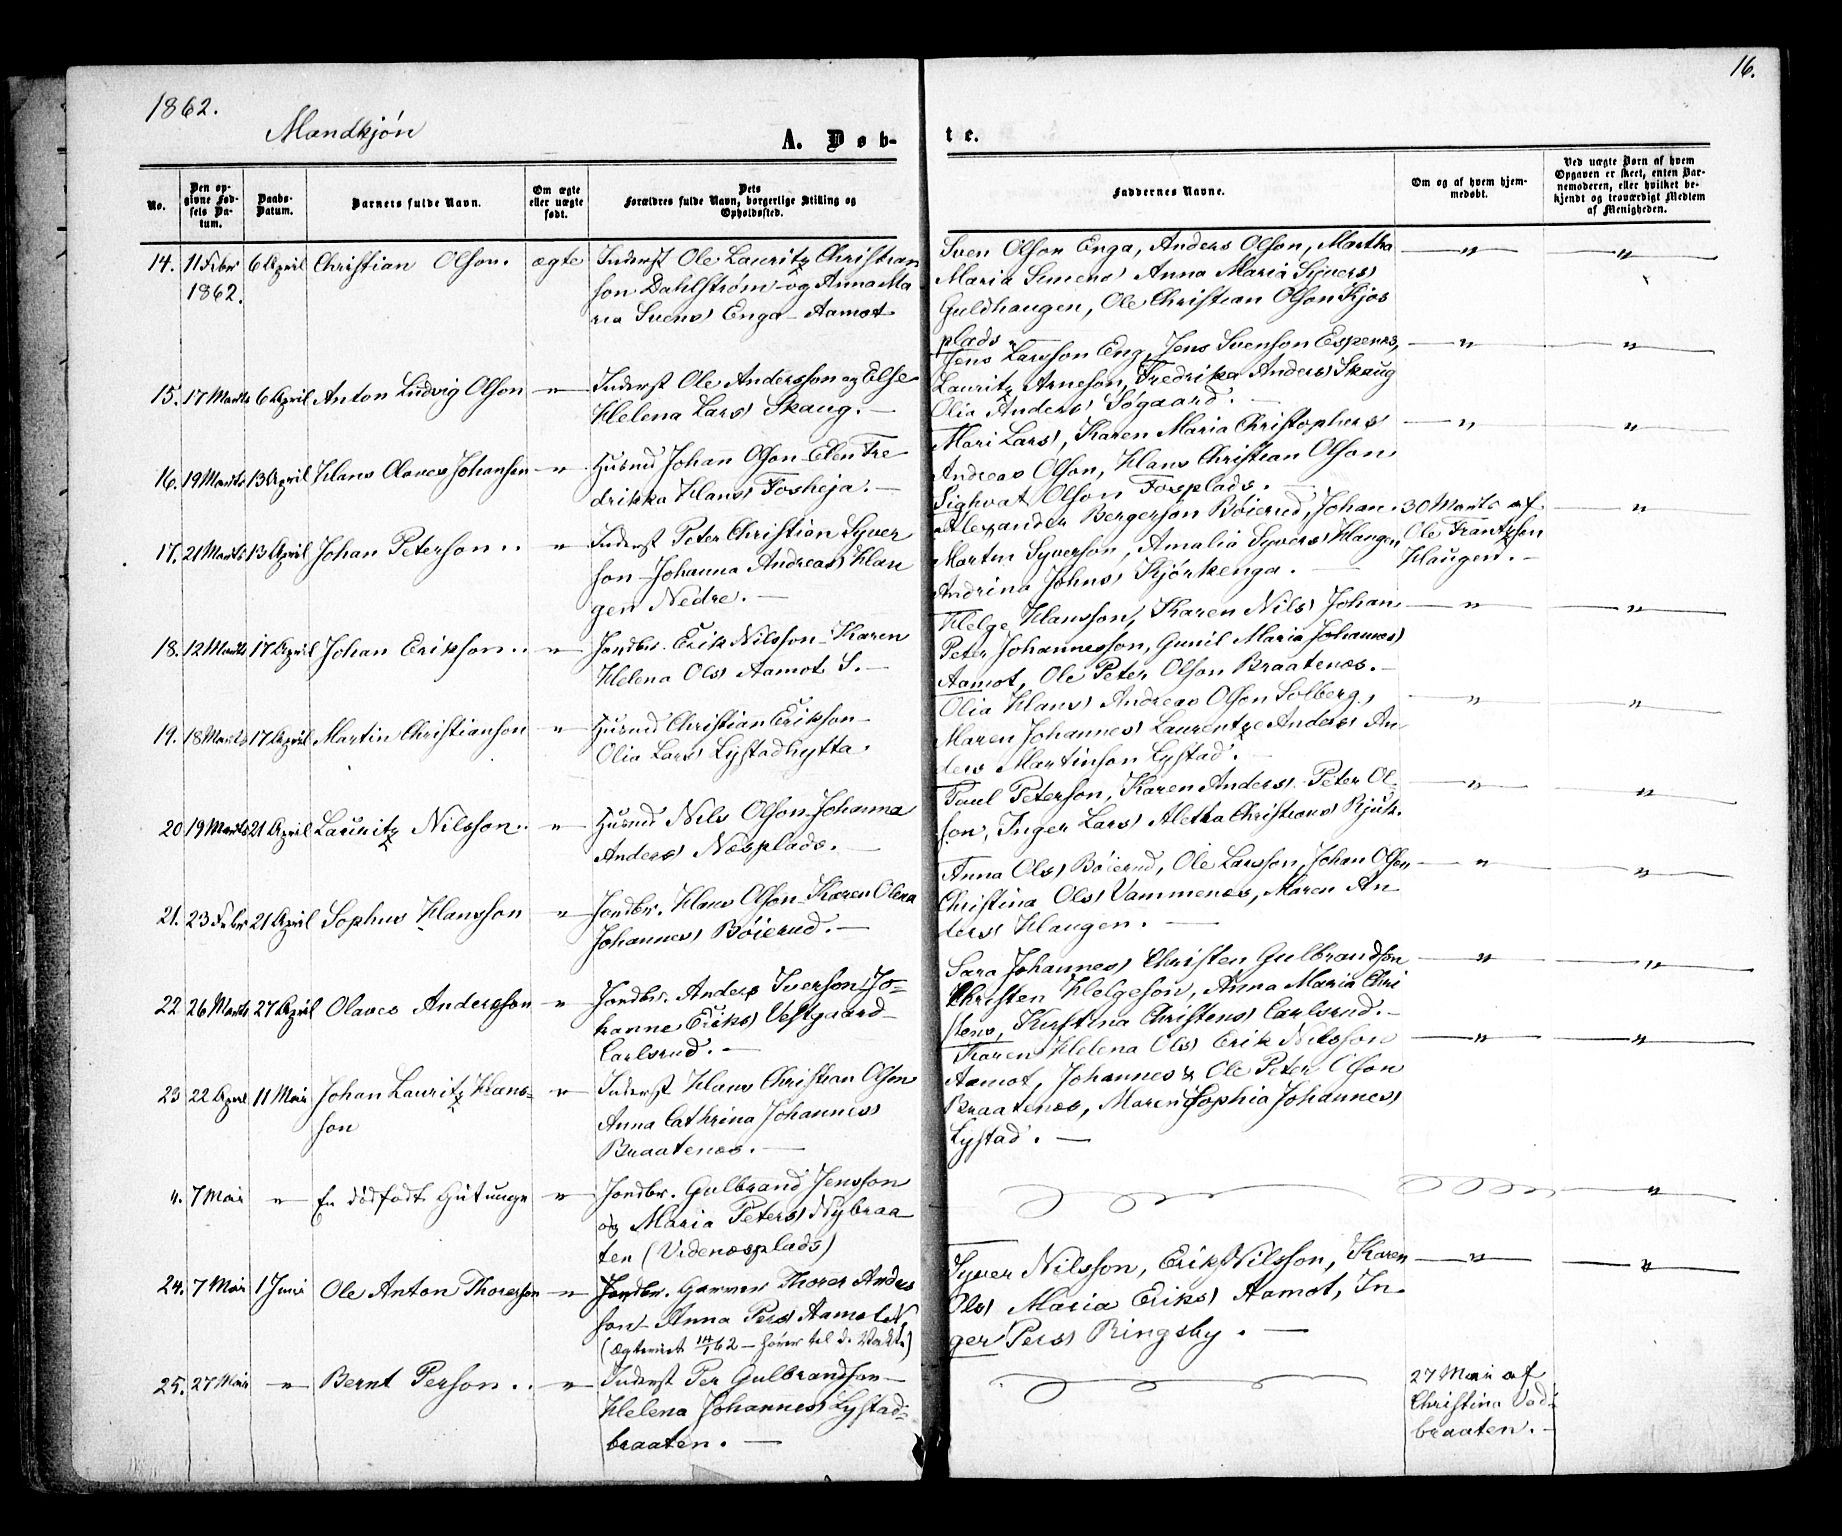 1862.
Mandkjøn
16.
A. Døb-
te.
No.
Den op-
givne Fød-
sels Da-
tum.
Daabs-
Datum.
Barnets fulde Navn.
Om ægte
eller uægte
født.
Dets
Forældres fulde Navn, borgerlige Stilling og
Opholdssted.
Faddernes Navne.
Om og af hvem hjem-
medøbt.
Ved uægte Børn af hvem
Opgaven er skeet, enten Bar-
nemoderen, eller hvilket be-
kjendt og troværdigt Medlem
af Menigheden.
14. 11 Febr 6 April Christian Olsson. ægte Inderst Ole Lauritz Christian
1862. son Dahlstrøm og Anna Ma
ria Svens) Enga Aamot
Sven Olsson Enga, Anders Olsson, Martha — " — — " —
Maria Simens) Anna Maria Syvers)
Guldhaugen, Ole Christian Olsson Kjos
plads.
15. 17 Marts 6 April Anton Ludvig Olsson — " — Inderst Ole Andersson og Else
Helena Lars) Skaug. —
Jens Larsson Eng, Jens Svenson Espenæs, — " — — " —
Lauritz Arneson, Fredrika Anders) Skaug
Olia Anders) Søgaard. —
16. 19 Marts 13 April Hans Olaves Johansson — " — Husmd Johan Olsson Elen Fre
drikka Hans) Fosheja. —
Mari Lars), Karen Maria Christophers) — " — — " —
Andreas Olsson, Hans Christian Olsson
Sighvat Olsson Fosplads. —
17. 21 Marts 13 April Johan Peterson.. " Inderst Peter Christian Syver
son Johanna Andreas) Hau
gen Nedre. —
Alexander Bergerson Bøierud, Johan 30 Marts af — " —
Martin Syverson, Amalia Syvers) Haugen, Ole Frantzson
Andrina Johns) Kjørkenga. — Haugen. —
18. 12 Marts 17 April Johan Erikson.. — " — Jordbr. Erik Nilsson Karen
Helena Ols) Aamot S. —
Helge Hansson, Karen Nils) Johan — " — — " —
Peter Johannesson, Gunil Maria Johannes)
Aamot, Ole Peter Olsson Braatenæs. —
19. 18 Marts 17 April Martin Christianson " Husmd Christian Erikson
Olia Lars) Lystadhytta.
Olia Hans) Andreas Olsson Solberg, — " — — " —
Maren Johannes) Laurentze Anders) An
ders Martinson Lystad. —
20 19 Marts 21 April Lauritz Nilsson.. — " — Husmd Nils Olsson Johanna
Anders) Næsplads. —
Paul Peterson, Karen Anders) Peter Ol — " — — " —
son, Inger Lars) Aletha Christians)
21. 23 Febr 21 April Sophus Hansson — " — Jordbr. Hans Olsson Karen Olena
Johannes) Bøierud. —
Anna Ols) Bøierud, Ole Larsson, Johan Olsson — " — — " —
Christina Ols) Vammenæs, Maren An
ders) Haugen. —
22 26 Marts 27 April Olaves Andersson — " — Jordbr. Anders Iverson Jo-
hanne Eriks) Vestgaard
Carlsrud. —
Sara Johannes) Christen Gulbrandson — " — — " —
Christen Helgeson, Anna Maria Chri
stens, Kirstina Christens) Carlsrud. —
23 22 April 11 Mai Johan Lauritz Hans- — " — Inderst Hans Christian Olsson
son Anna Cathrina Johannes)
Braatenæs. —
Karen Helena Ols) Erik Nilsson — " — — " —
Aamot, Johannes & Ole Peter Olsson
Braatenæs, Maren Sophia Johannes)
Lystad. —
4. 7 Mai — " — En dødfødt Gutunge — " — Jordbr. Gulbrand Jensson
og Maria Peters) Nybraa
ten (Videnæsplads)
— " —
24. 7 Mai 1 Juni Ole Anton Thoresson — " — Jordbr. Thorer Anders
son Anna Pers) Aamot N.
(Ægteviet 14/1 62 — hører til
Syver Nilsson, Erik Nilsson, Karen — " — — " —
Ols) Maria Eriks) Aamot, In
ger Pers) Ringsby. —
25. 27 Mai — " — Bernt Person.. — " — Inderst Per Gulbrandson
Helena Johannes) Lystad-
braaten. —
27 Mai af
Christina Ved-
braaten. —